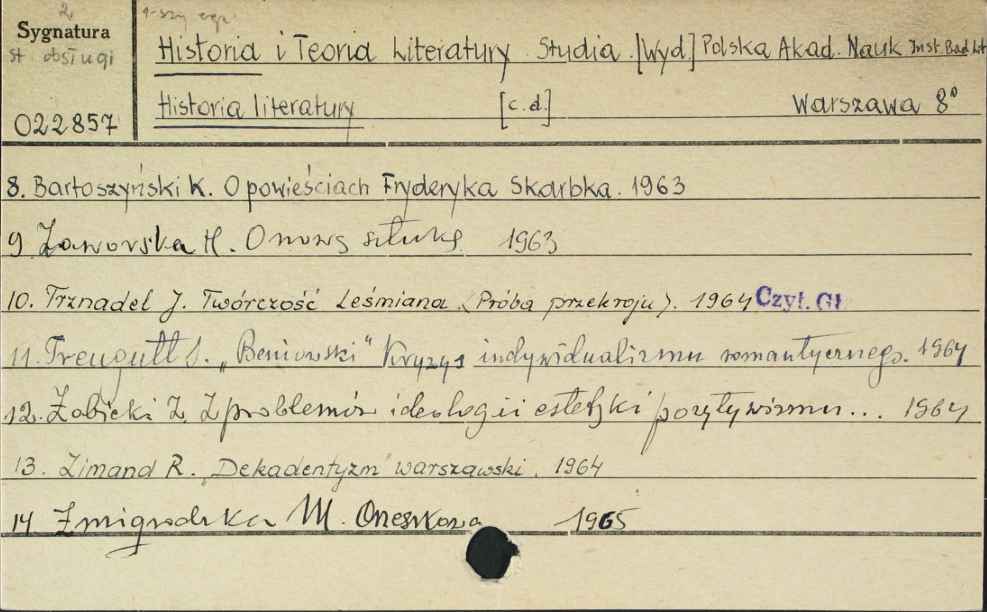 2 1-szy egz.
Sygnatura
st obsługi
022857
Historia i Teoria Literatury. Studia. [Wyd.] Polska Akad. Nauk Inst. Bad. Lit
Historia literatury [c.d.] Warszawa 8°
8. Bartoszyński K. O powieściach Fryderyka Skarbka. 1963
9. Zaworska H. O nową sztukę 1963
10. Trznadel J. Twórczość Leśmiana. (Próba przekroju). 1964 Czyt. Gł.
11. Treugutt S. „Beniowski” Kryzys indywidualizmu romantycznego. 1964
12. Żabicki Z. Z problemów ideologii i estetyki pozytywizmu... 1964
13. Zimand R. „Dekadentyzm” warszawski. 1964
14 Żmigrodzka M. Orzeszkowa 1965